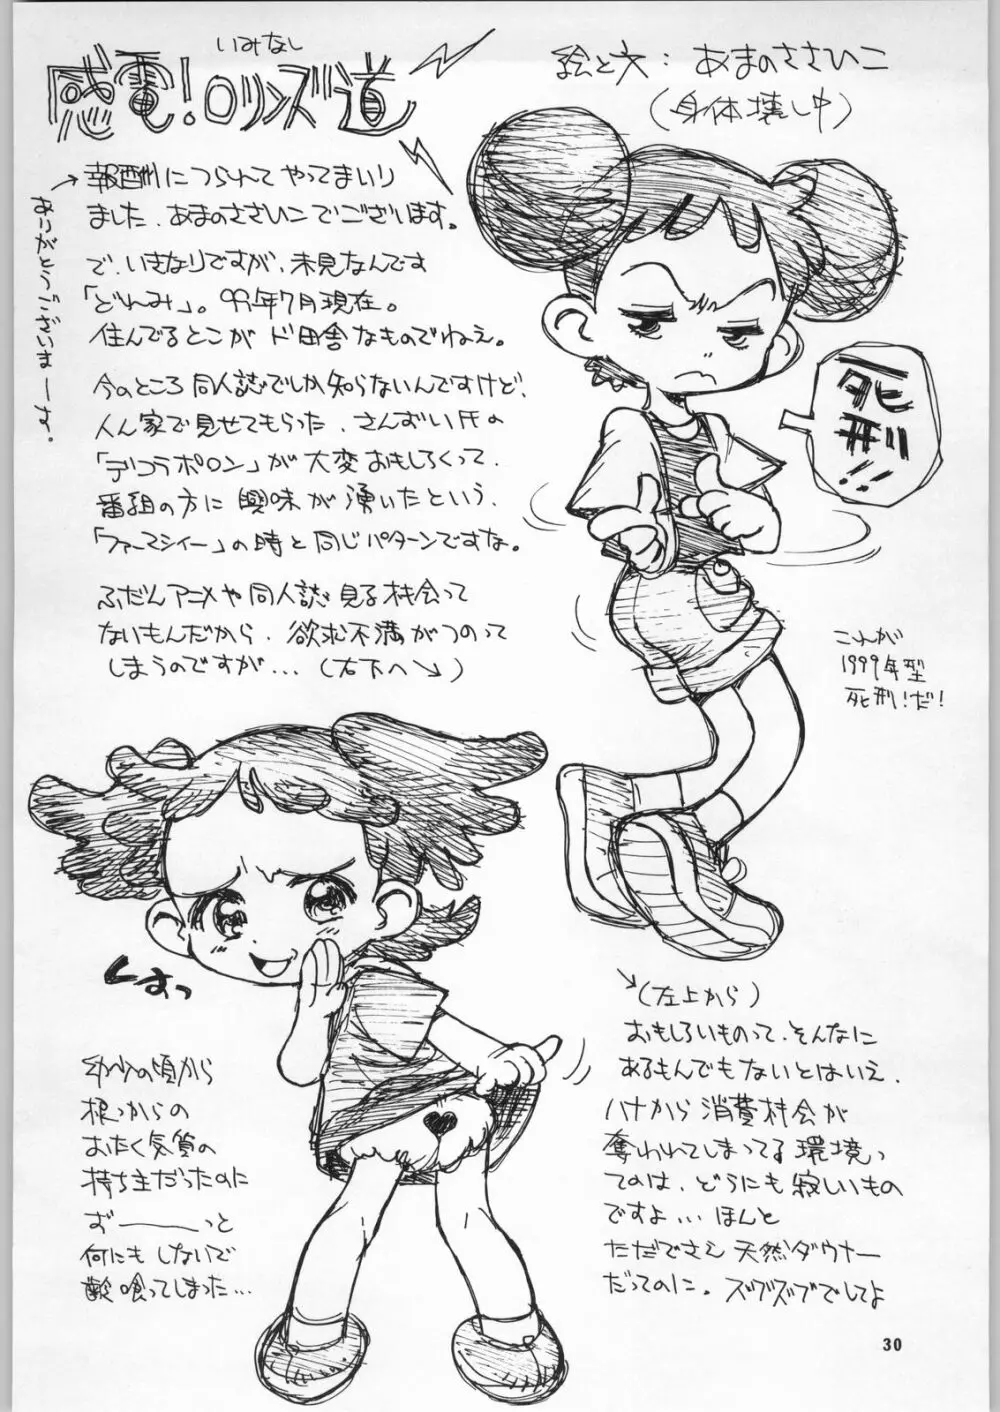 いみなし
感電!ロリンズ道
絵と文：あまのささひこ
（身体壊し中）
報酬につられてやってまいり
ました、あまのささひこでございます。
ありがとうございまーす。
で、いきなりですが、未見なんです
「どれみ」。99年7月現在。
住んでるとこがド田舎なものでねぇ。
今のところ同人誌でしか知らないんですけど、
人ん家で見せてもらった、さんずい氏の
「デコラポロン」が大変おもしろくって、
番組の方に興味が湧いたという、
「ファーマシィー」の時と同じパターンですな。
ふだんアニメや同人誌見る機会って
ないもんだから、欲求不満がつのって
しまうのですが…（右下へ↘）
死刑!!
これが
1999年型
死刑!だ!
くすっ
幼少の頃から
根っからの
おたく気質の
持ち主だったのに
ずーーーっと
何にもしないで
齢喰ってしまった…
↘（左上から）
おもしろいものって、そんなに
あるもんでもないとはいえ、
ハナから消費機会が
奪われてしまってる環境っ
てのは、どうにも寂しいもの
ですよ…ほんと
ただでさえ天然ダウナー
だってのに。ズブズブでしてよ
30